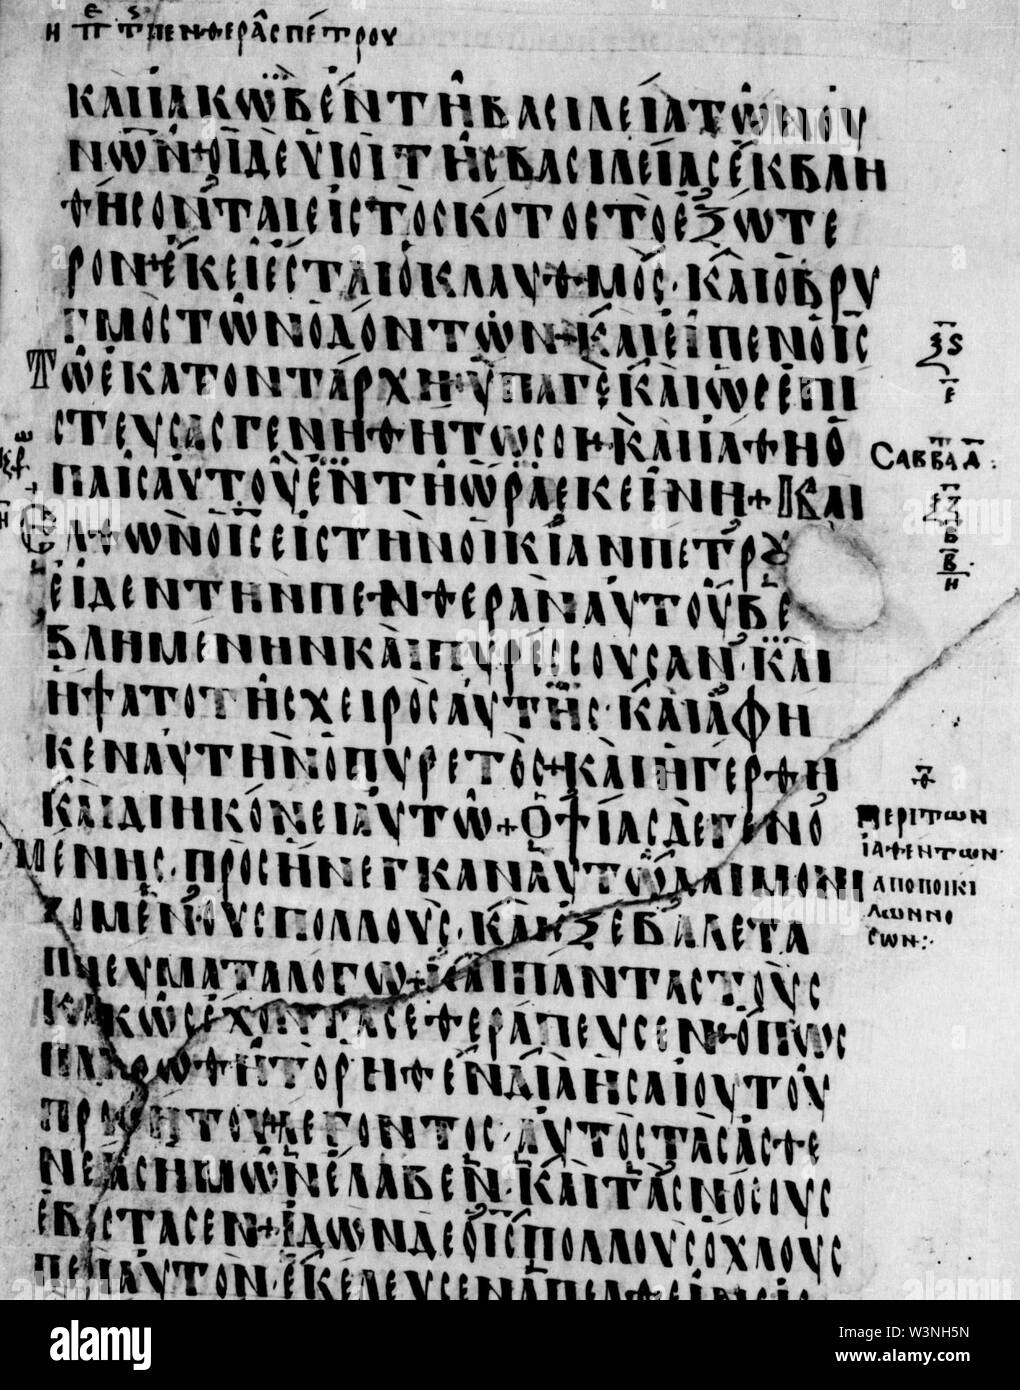 Η Π Τ ΠΕΝΘΕΡᾶΣ ΠΈΤΡΟΥ
ΚΑΙ ΙΑΚΩΒ ΕΝ ΤΗ ΒΑΣΙΛΕΙΑ ΤΩΝ ΟΥ
ΝΩΝ + ΟΙ ΔΕ ΥΙΟΙ ΤΗΣ ΒΑΣΙΛΕΙΑΣ ΕΚΒΛΗ
ΘΗΣΟΝΤΑΙ ΕΙΣ ΤΟ ΣΚΟΤΟΣ ΤΟ ΕΞΩΤΕ
ΡΟΝ + ΕΚΕΙ ΕΣΤΑΙ Ο ΚΛΑΥΘΜΟΣ · ΚΑΙ Ο ΒΡΥ
ΓΜΟΣ ΤΩΝ ΟΔΟΝΤΩΝ + ΚΑΙ ΕΙΠΕΝ Ο ΙΣ
ΤΩ ΕΚΑΤΟΝΤΑΡΧΗ + ΥΠΑΓΕ ΚΑΙ ΩΣ ΕΠΙ
ΣΤΕΥΣΑΣ ΓΕΝΗΘΗΤΩ ΣΟΙ + ΚΑΙ ΙΑΘΗ Ο
ΠΑΙΣ ΑΥΤΟΥ ΕΝ ΤΗ ΩΡΑ ΕΚΕΙΝΗ + ΚΑΙ
ΕΛΘΩΝ Ο ΙΣ ΕΙΣ ΤΗΝ ΟΙΚΙΑΝ ΠΕΤΡΟΥ
ΕΙΔΕΝ ΤΗΝ ΠΕΝΘΕΡΑΝ ΑΥΤΟΥ ΒΕ
ΒΛΗΜΕΝΗΝ ΚΑΙ ΠΥΡΕΣΣΟΥΣΑΝ · ΚΑΙ
ΗΨΑΤΟ ΤΗΣ ΧΕΙΡΟΣ ΑΥΤΗΣ · ΚΑΙ ΑΦΗ
ΚΕΝ ΑΥΤΗΝ Ο ΠΥΡΕΤΟΣ + ΚΑΙ ΗΓΕΡΘΗ
ΚΑΙ ΔΙΗΚΟΝΕΙ ΑΥΤΩ + ΟΨΙΑΣ ΔΕ ΓΕΝΟ
ΜΕΝΗΣ · ΠΡΟΣΗΝΕΓΚΑΝ ΑΥΤΩ ΔΑΙΜΟΝΙ
ΖΟΜΕΝΟΥΣ ΠΟΛΛΟΥΣ · ΚΑΙ ΕΞΕΒΑΛΕ ΤΑ
ΠΝΕΥΜΑΤΑ ΛΟΓΩ + ΚΑΙ ΠΑΝΤΑΣ ΤΟΥΣ
ΚΑΚΩΣ ΕΧΟΝΤΑΣ ΕΘΕΡΑΠΕΥΣΕΝ + ΟΠΩΣ
ΠΛΗΡΩΘΗ ΤΟ ΡΗΘΕΝ ΔΙΑ ΗΣΑΙΟΥ ΤΟΥ
ΠΡΟΦΗΤΟΥ ΛΕΓΟΝΤΟΣ · ΑΥΤΟΣ ΤΑΣ ΑΣΘΕ
ΝΕΙΑΣ ΗΜΩΝ ΕΛΑΒΕΝ · ΚΑΙ ΤΑΣ ΝΟΣΟΥΣ
ΕΒΑΣΤΑΣΕΝ + ΙΔΩΝ ΔΕ Ο ΙΣ ΠΟΛΛΟΥΣ ΟΧΛΟΥΣ
ΠΕΡΙ ΑΥΤΟΝ · ΕΚΕΛΕΥΣΕΝ ΑΠΕΛΘΕΙΝ ΕΙΣ
ξϛ
ε
ΣΑΒΒΑ Δ:
ξζ
Β
Η
Θ
ΠΕΡΙ ΤΩΝ
ΙΑΘΕΝΤΩΝ
ΑΠΟ ΠΟΙΚΙ
ΛΩΝ ΝΟ
ΣΩΝ:·
alamy
Image ID: W3NH5N
www.alamy.com